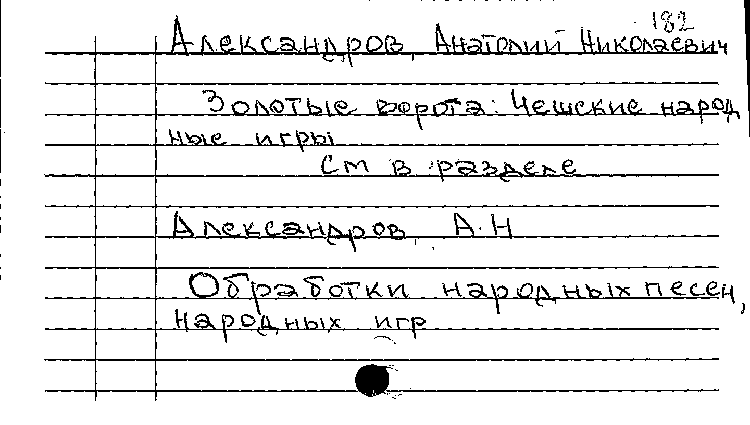 182
Александров, Анатолий Николаевич
Золотые ворота: Чешские народ
ные игры
См в разделе
Александров, А.Н
Обработки народных песен,
народных игр